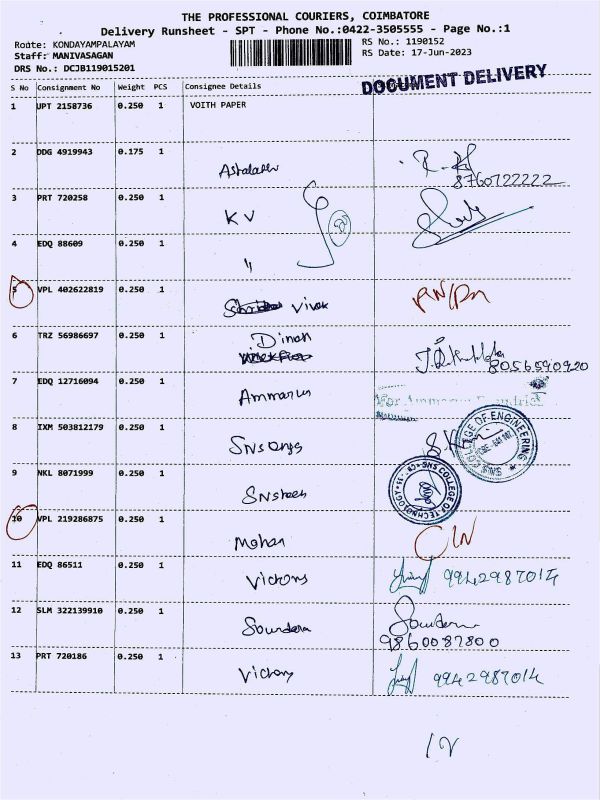 THE PROFESSIONAL COURIERS, COIMBATORE
Delivery Runsheet - SPT - Phone No.:0422-3505555 - Page No.:1
Route: KONDAYAMPALAYAM RS No.: 1190152
Staff: MANIVASAGAN RS Date: 17-Jun-2023
DRS No.: DCJB119015201
DOCUMENT DELIVERY
S No Consignment No Weight PCS Consignee Details
1 UPT 2158736 0.250 1 VOITH PAPER
2 DDG 4919943 0.175 1
8760722222
3 PRT 720258 0.250 1 KV
4 EDQ 88609 0.250 1 "
5 VPL 402622819 0.250 1 Vivek
6 TRZ 56986697 1 0.250 1 Dinesh
8056590920
7 EDQ 12716094 0.250 1
For
8 IXM 503812179 0.250 1
SNS COLLEGE OF ENGINEERING
9 NKL 8071999 0.250 1
SNS COLLEGE OF TECHNOLOGY
10 VPL 219286875 0.250 1 Mohan
11 EDQ 86511 0.250 1 Victory 9942987014
12 SLM 322139910 0.250 1 Soundera
9860087800
13 PRT 720186 0.250 1 Victory 9942987014